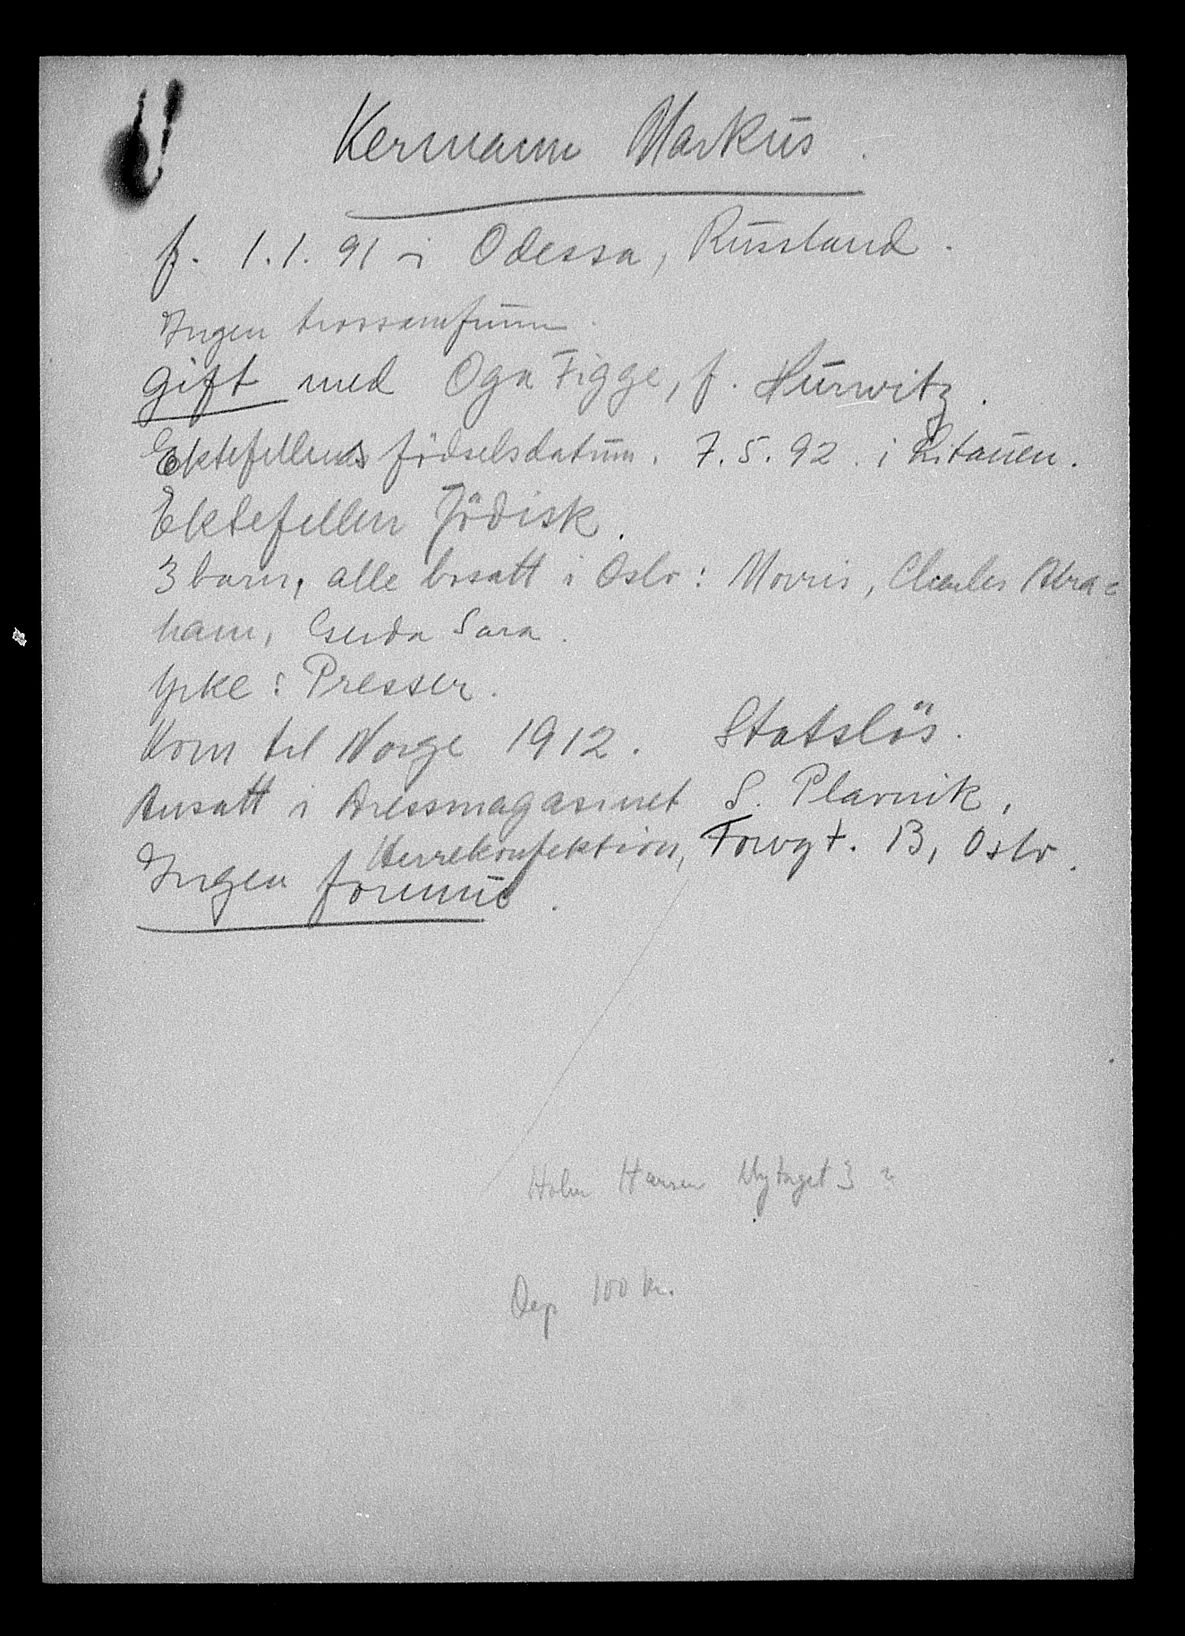 Kermann Markus.
f. 1.1.91 i Odessa, Russland.
Ingen trossamfunn.
gift med Oga Figge, f. Hurwitz.
Ektefellens födselsdatum. 7.5.92. i Litauen.
Ektefellen Jödisk.
3 barn, alle bosatt i Oslo: Morris, Charles Abra=
ham, Gerda Sara.
Yrke: Presser.
Kom til Norge 1912. Statslös.
Ansatt i Dressmagasinet S. Plavnik,
Herrekonfektion, Torvgt. 13, Oslo.
Ingen formue.
Holm Hansen 3
Dep 100 kr.